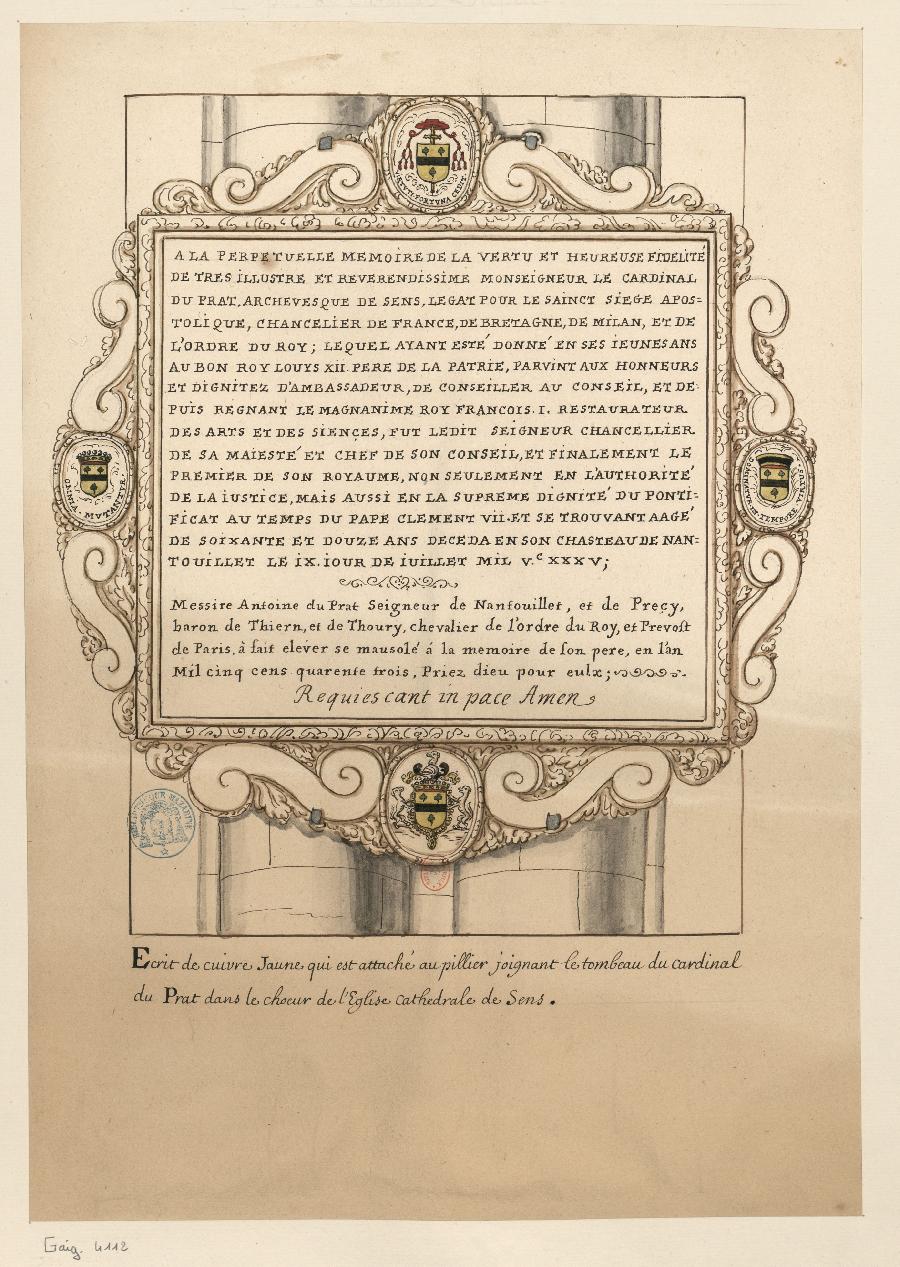 VIRTUTI FORTUNA CEDIT
A LA PERPETUELLE MEMOIRE DE LA VERTU ET HEUREUSE FIDELITÉ
DE TRES ILLUSTRE ET REVERENDISSIME MONSEIGNEUR LE CARDINAL
DU PRAT, ARCHEVESQUE DE SENS, LEGAT POUR LE SAINCT SIEGE APOS=
TOLIQUE, CHANCELIER DE FRANCE, DE BRETAGNE, DE MILAN, ET DE
L'ORDRE DU ROY; LEQUEL AYANT ESTÉ DONNÉ EN SES IEUNES ANS
AU BON ROY LOUYS XII. PERE DE LA PATRIE, PARVINT AUX HONNEURS
ET DIGNITEZ D'AMBASSADEUR, DE CONSEILLER AU CONSEIL, ET DE-
PUIS REGNANT LE MAGNANIME ROY FRANCOIS. I. RESTAURATEUR
DES ARTS ET DES SIENCES, FUT LEDIT SEIGNEUR CHANCELLIER
DE SA MAIESTÉ ET CHEF DE SON CONSEIL, ET FINALEMENT LE
PREMIER DE SON ROYAUME, NON SEULEMENT EN L'AUTHORITÉ
DE LA IUSTICE, MAIS AUSSI EN LA SUPREME DIGNITÉ DU PONTI=
FICAT AU TEMPS DU PAPE CLEMENT VII. ET SE TROUVANT AAGÉ
DE SOIXANTE ET DOUZE ANS DECEDA EN SON CHASTEAU DE NAN=
TOUILLET LE IX. IOUR DE IUILLET MIL V.C XXXV;
Messire Antoine du Prat Seigneur de Nantouillet, et de Preçy,
baron de Thiern, et de Thoury, chevalier de l'ordre du Roy, et Prevost
de Paris, à fait elever se mausolé á la memoire de son pere, en l'an
Mil cinq cens quarente trois, Priez dieu pour eulx;
Requiescant in pace Amen
OMNIA MVTANTVR
IN TEMPORE
Ecrit de cuivre Jaune qui est attaché au pillier joignant le tombeau du cardinal
du Prat dans le choeur de l'Eglise Cathedrale de Sens.
Gaig. 4112